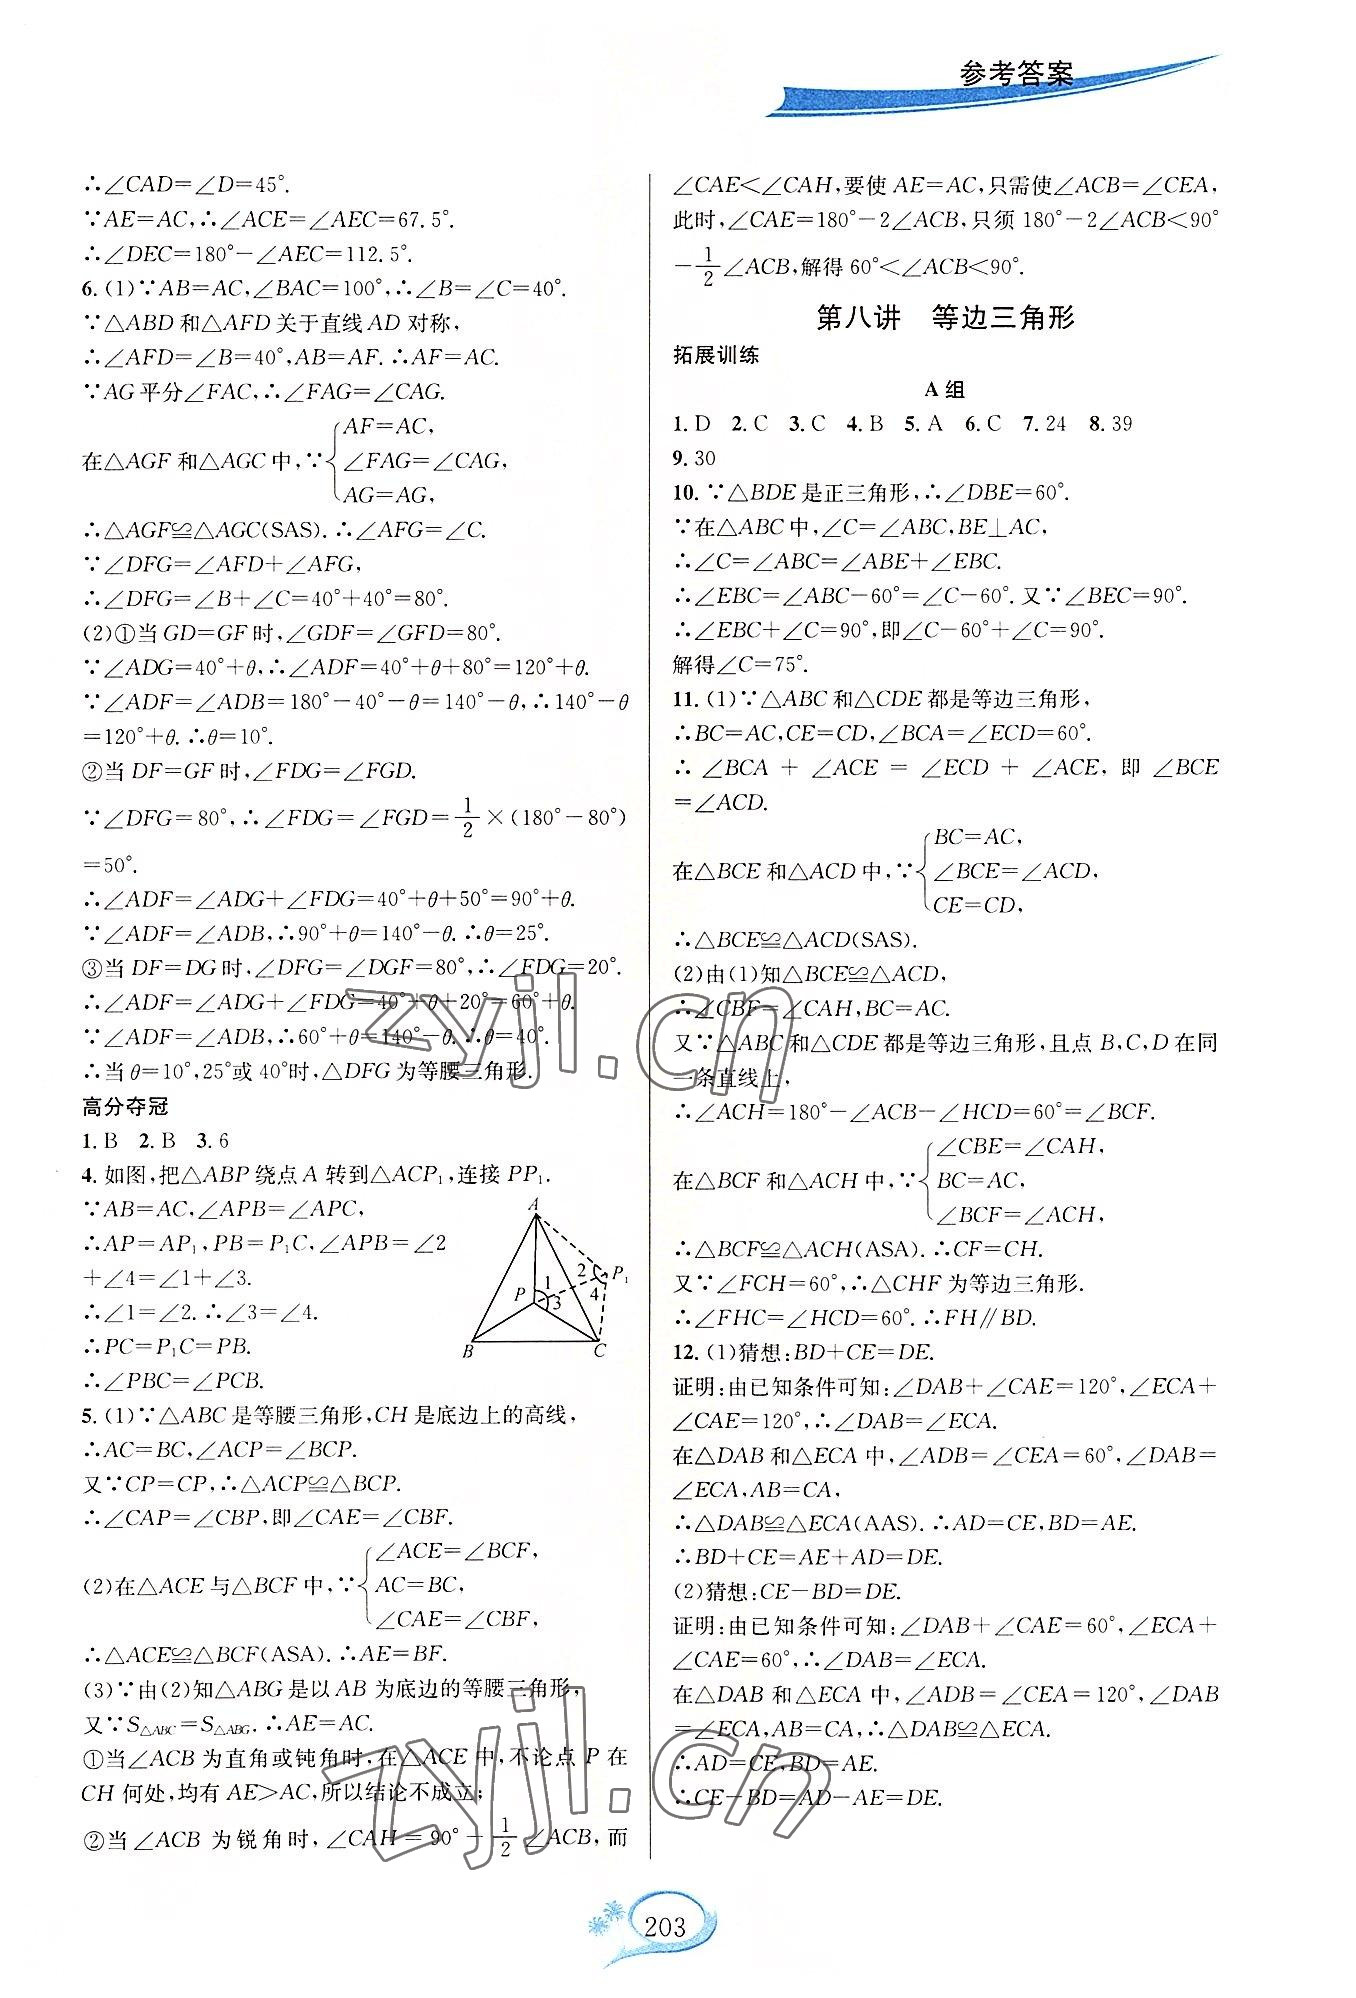 参考答案
∴∠CAD=∠D=45°.
∵AE=AC,∴∠ACE=∠AEC=67.5°.
∴∠DEC=180°-∠AEC=112.5°.
6.(1)∵AB=AC,∠BAC=100°,∴∠B=∠C=40°.
∵△ABD和△AFD关于直线AD对称,
∴∠AFD=∠B=40°,AB=AF.∴AF=AC.
∵AG平分∠FAC,∴∠FAG=∠CAG.
AF=AC,
在△AGF和△AGC中,∵{∠FAG=∠CAG,
AG=AG,
∴△AGF≌△AGC(SAS).∴∠AFG=∠C.
∵∠DFG=∠AFD+∠AFG,
∴∠DFG=∠B+∠C=40°+40°=80°.
(2)①当GD=GF时,∠GDF=∠GFD=80°.
∵∠ADG=40°+θ,∴∠ADF=40°+θ+80°=120°+θ.
∵∠ADF=∠ADB=180°-40°-θ=140°-θ,∴140°-θ
=120°+θ.∴θ=10°.
②当DF=GF时,∠FDG=∠FGD.
∵∠DFG=80°,∴∠FDG=∠FGD=1/2×(180°-80°)
=50°.
∴∠ADF=∠ADG+∠FDG=40°+θ+50°=90°+θ.
∵∠ADF=∠ADB,∴90°+θ=140°-θ.∴θ=25°.
③当DF=DG时,∠DFG=∠DGF=80°,∴∠FDG=20°.
∴∠ADF=∠ADG+∠FDG=40°+θ+20°=60°+θ.
∵∠ADF=∠ADB,∴60°+θ=140°-θ.∴θ=40°.
∴当θ=10°,25°或40°时,△DFG为等腰三角形.
高分夺冠
1.B 2.B 3.6
4.如图,把△ABP绕点A转到△ACP₁,连接PP₁.
∵AB=AC,∠APB=∠APC,
∴AP=AP₁,PB=P₁C,∠APB=∠2
+∠4=∠1+∠3.
∴∠1=∠2.∴∠3=∠4.
∴PC=P₁C=PB.
∴∠PBC=∠PCB.
A
P
1
2
3
4
P₁
B
C
5.(1)∵△ABC是等腰三角形,CH是底边上的高线,
∴AC=BC,∠ACP=∠BCP.
又∵CP=CP,∴△ACP≌△BCP.
∴∠CAP=∠CBP,即∠CAE=∠CBF.
∠ACE=∠BCF,
(2)在△ACE与△BCF中,∵{AC=BC,
∠CAE=∠CBF,
∴△ACE≌△BCF(ASA).∴AE=BF.
(3)∵由(2)知△ABG是以AB为底边的等腰三角形,
又∵S△ABC=S△ABG.∴AE=AC.
①当∠ACB为直角或钝角时,在△ACE中,不论点P在
CH何处,均有AE>AC,所以结论不成立;
②当∠ACB为锐角时,∠CAH=90°-1/2∠ACB,而
∠CAE<∠CAH,要使AE=AC,只需使∠ACB=∠CEA,
此时,∠CAE=180°-2∠ACB,只须180°-2∠ACB<90°
-1/2∠ACB,解得60°<∠ACB<90°.
第八讲 等边三角形
拓展训练
A组
1.D 2.C 3.C 4.B 5.A 6.C 7.24 8.39
9.30
10.∵△BDE是正三角形,∴∠DBE=60°.
∵在△ABC中,∠C=∠ABC,BE⊥AC,
∴∠C=∠ABC=∠ABE+∠EBC.
∴∠EBC=∠ABC-60°=∠C-60°.又∵∠BEC=90°.
∴∠EBC+∠C=90°,即∠C-60°+∠C=90°.
解得∠C=75°.
11.(1)∵△ABC和△CDE都是等边三角形,
∴BC=AC,CE=CD,∠BCA=∠ECD=60°.
∴∠BCA+∠ACE=∠ECD+∠ACE,即∠BCE
=∠ACD.
BC=AC,
在△BCE和△ACD中,∵{∠BCE=∠ACD,
CE=CD,
∴△BCE≌△ACD(SAS).
(2)由(1)知△BCE≌△ACD,
∴∠CBF=∠CAH,BC=AC.
又∵△ABC和△CDE都是等边三角形,且点B,C,D在同
一条直线上,
∴∠ACH=180°-∠ACB-∠HCD=60°=∠BCF.
∠CBE=∠CAH,
在△BCF和△ACH中,∵{BC=AC,
∠BCF=∠ACH,
∴△BCF≌△ACH(ASA).∴CF=CH.
又∵∠FCH=60°,∴△CHF为等边三角形.
∴∠FHC=∠HCD=60°.∴FH∥BD.
12.(1)猜想:BD+CE=DE.
证明:由已知条件可知:∠DAB+∠CAE=120°,∠ECA+
∠CAE=120°,∴∠DAB=∠ECA.
在△DAB和△ECA中,∠ADB=∠CEA=60°,∠DAB=
∠ECA,AB=CA,
∴△DAB≌△ECA(AAS).∴AD=CE,BD=AE.
∴BD+CE=AE+AD=DE.
(2)猜想:CE-BD=DE.
证明:由已知条件可知:∠DAB+∠CAE=60°,∠ECA+
∠CAE=60°,∴∠DAB=∠ECA.
在△DAB和△ECA中,∠ADB=∠CEA=120°,∠DAB
=∠ECA,AB=CA,∴△DAB≌△ECA.
∴AD=CE,BD=AE.
∴CE-BD=AD-AE=DE.
zyjl.cn
zyjl.cn
203